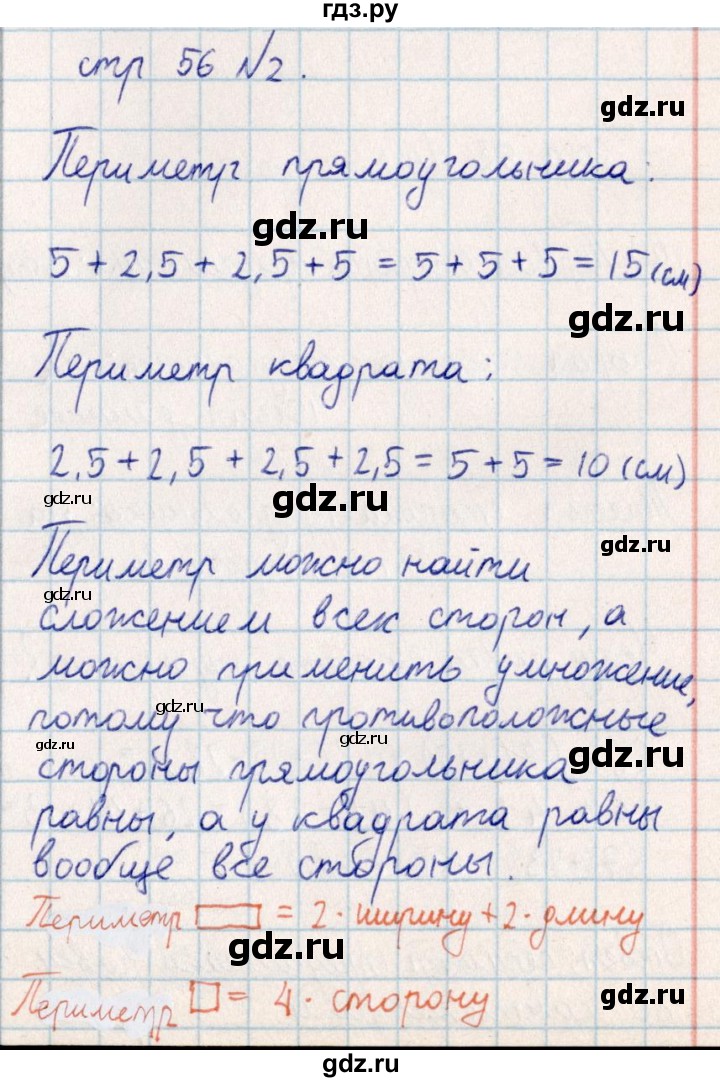 гдз.ру
стр 56 №2.
gdz.ru
Периметр прямоугольника:
gdz.ru
5 + 2,5 + 2,5 + 5 = 5 + 5 + 5 = 15 (см)
gdz.ru
Периметр квадрата:
2,5 + 2,5 + 2,5 + 2,5 = 5 + 5 = 10 (см)
gdz.ru
gdz.ru
gdz.ru
Периметр можно найти
gdz.ru
сложением всех сторон, а
можно применить умножение,
gdz.ru
потому что противоположные
gdz.ru
gdz.ru
gdz.ru
стороны прямоугольника
равны, а у квадрата равны
вообще все стороны.
Периметр ▭ = 2 · ширину + 2 · длину
gdz.ru
Периметр □ = 4 · сторону
gdz.ru
gdz.ru